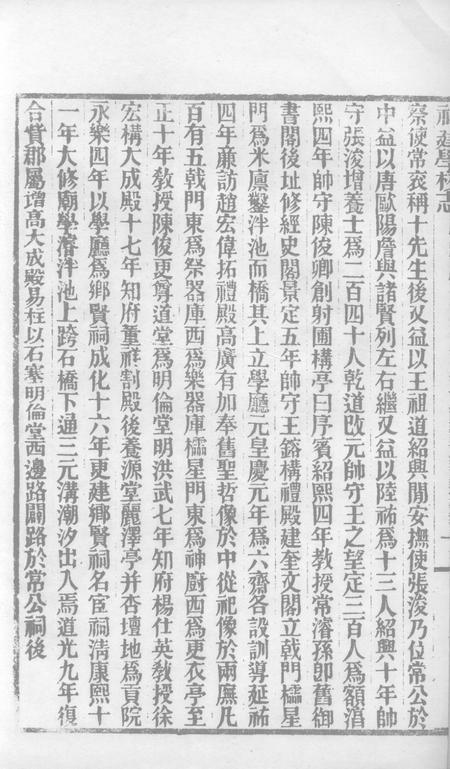 福建學校志
察使常袞稱十先生後又益以王祖道紹興間安撫使張浚乃位常公於
中益以唐歐陽詹與諸賢列左右繼又益以陸祐爲十三人紹興十年帥
守張浚增養士爲二百四十人乾道改元帥守王之望定三百人爲額淳
熙四年帥守陳俊卿創射圃構亭曰序賓紹熙四年教授常濬孫卽舊御
書閣後址修經史閣景定五年帥守王鎔構禮殿建奎文閣立戟門櫺星
門爲米廩鑿泮池而橋其上立學廳元皇慶元年爲六齋各設訓導延祐
四年廉訪趙宏偉拓禮殿高廣有加奉舊聖哲像於中從祀像於兩廡凡
百有五戟門東爲祭器庫西爲樂器庫櫺星門東爲神廚西爲更衣亭至
正十年教授陳俊更尊道堂爲明倫堂明洪武七年知府楊仕英教授徐
宏構大成殿十七年知府董祥割殿後養源堂麗澤亭并杏壇地爲貢院
永樂四年以學廳爲鄉賢祠成化十六年更建鄉賢祠名宦祠清康熙十
一年大修廟學濬泮池上跨石橋下通三元溝潮汐出入焉道光九年復
合賞郡屬增高大成殿易柱以石塞明倫堂西邊路闢路於常公祠後